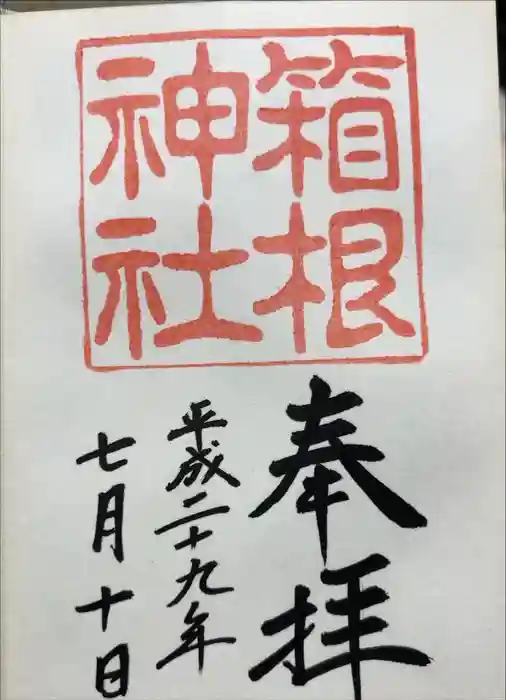 箱根
神社
奉拝
平成二十九年
七月十日